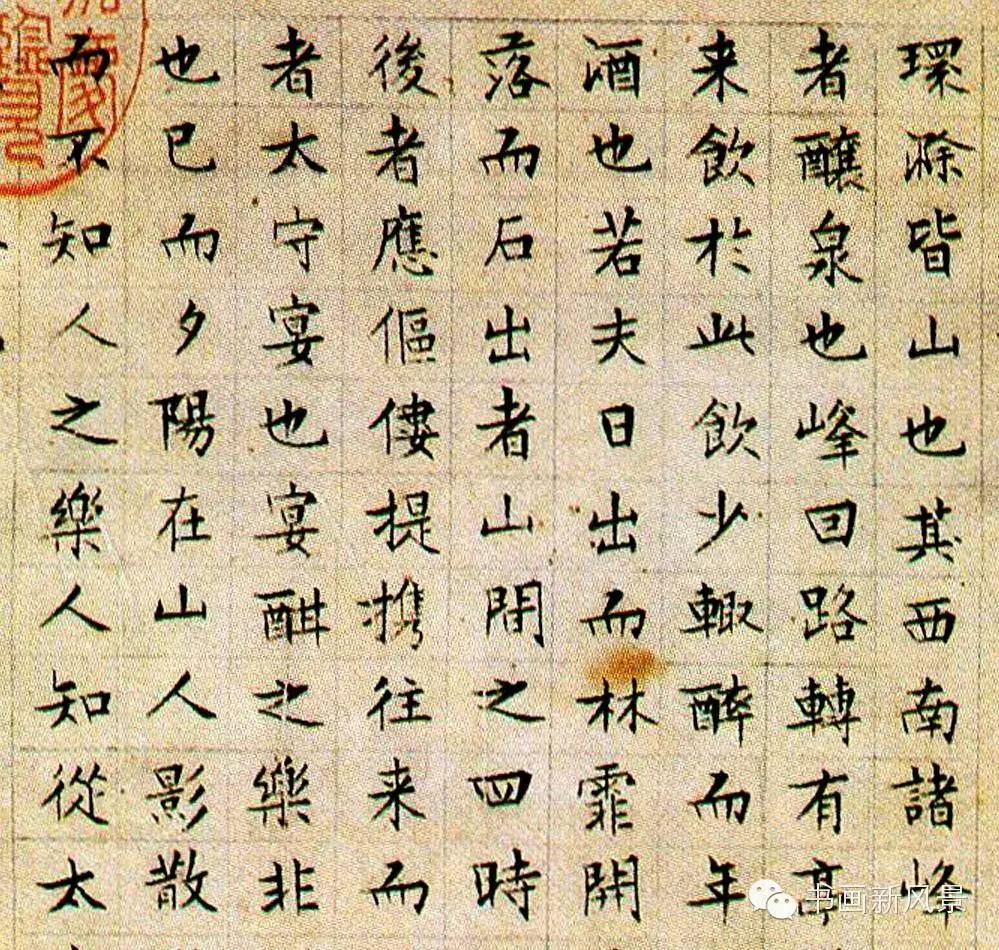 環滁皆山也其西南諸峰
者釀泉也峰回路轉有亭
来飲於此飲少輙醉而年
酒也若夫日出而林霏開
落而石出者山間之四時
後者應傴僂提携往来而
者太守宴也宴酣之樂非
也已而夕陽在山人影散
而不知人之樂人知從太
书画新风景